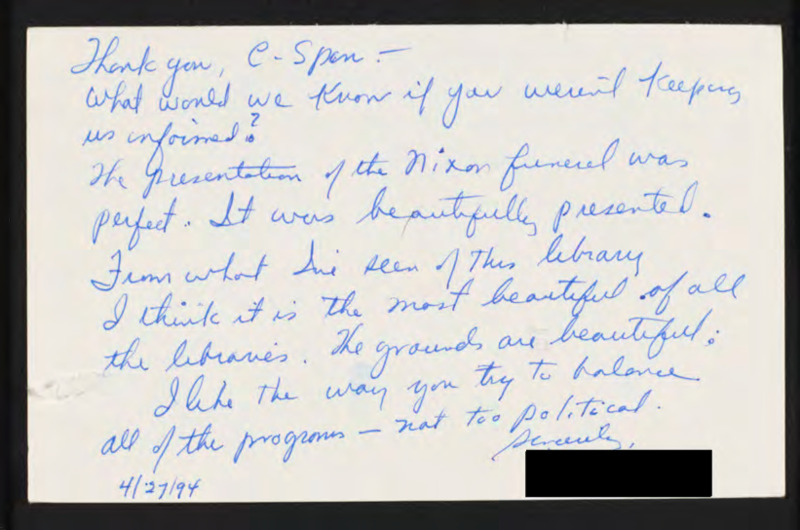 Thank you, C-Span —
What would we know if you weren't keeping
us informed?
The presentation of the Nixon funeral was
perfect. It was beautifully presented.
From what I've seen of this library
I think it is the most beautiful of all
the libraries. The grounds are beautiful.
I like the way you try to balance
all of the programs — not too political.
Sincerely,
4/27/94